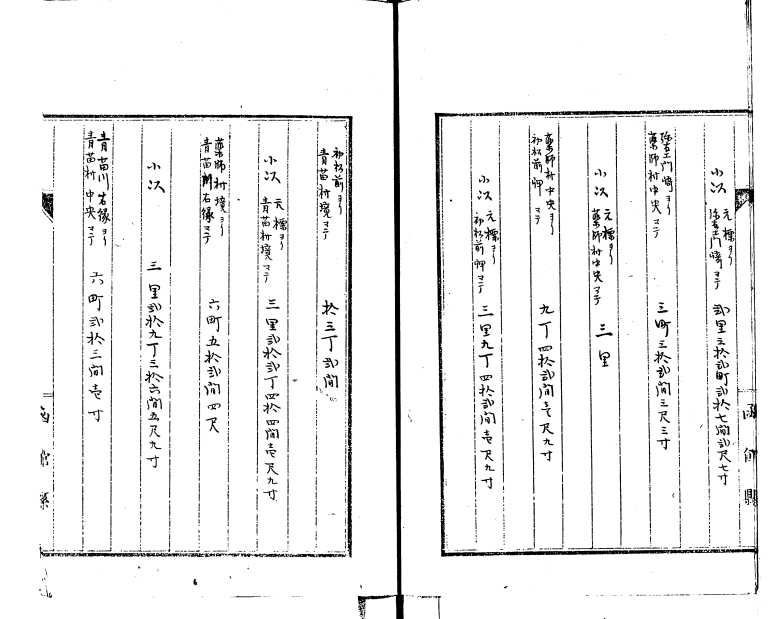 小以 元標ヨリ
左エ門崎マテ 弐里三拾弐町弐拾七間弐尺七寸
左エ門崎ヨリ
藥師村中央マテ 三町三拾弐間三尺三寸
小以 元標ヨリ
藥師村中央マテ 三里
藥師村中央ヨリ
初松前岬マテ 九丁四拾弐間壱尺九寸
小以 元標ヨリ
初松前岬マテ 三里九丁四拾弐間壱尺九寸
函館縣
初松前ヨリ
青苗村境マテ 拾三丁弐間
小以 元標ヨリ
青苗村境マテ 三里弐拾弐丁四拾四間壱尺九寸
藥師村境ヨリ
青苗川右縁マテ 六町五拾弐間四尺
小以 三里弐拾九丁三拾六間五尺九寸
青苗川右縁ヨリ
青苗村中央マテ 六町弐拾三間壱寸
函館縣